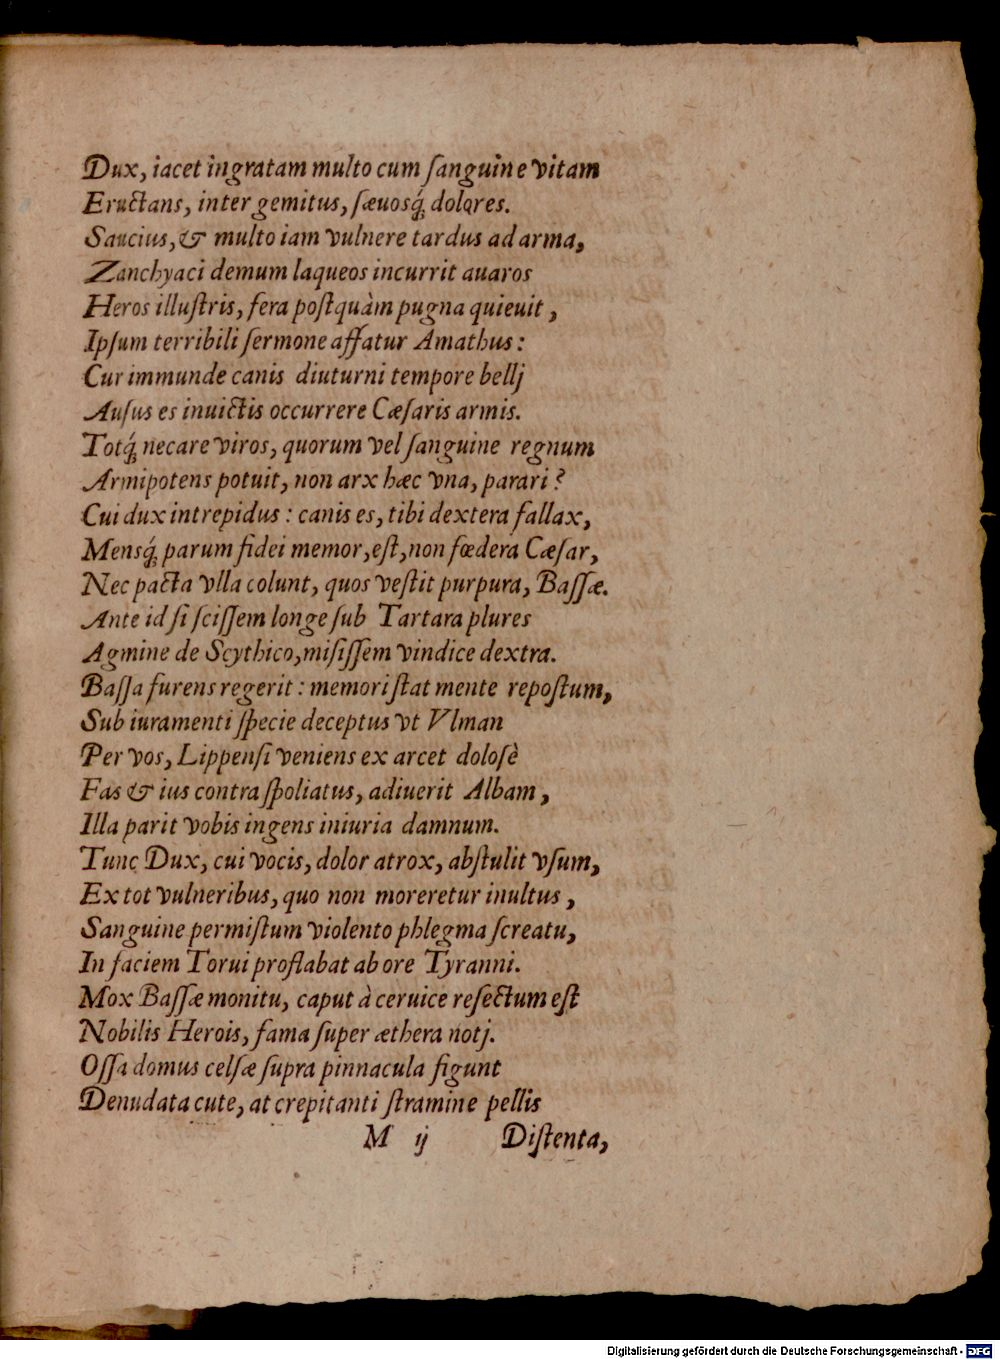 Dux, iacet ingratam multo cum ſanguine vitam
Eructans, inter gemitus, ſæuosq́; dolores.
Saucius, & multo iam vulnere tardus ad arma,
Zanchyaci demum laqueos incurrit auaros
Heros illuſtris, fera poſtquàm pugna quieuit,
Ipſum terribili ſermone affatur Amathus:
Cur immunde canis diuturni tempore bellj
Auſus es inuictis occurrere Cæſaris armis.
Totq́; necare viros, quorum vel ſanguine regnum
Armipotens potuit, non arx hæc vna, parari?
Cui dux intrepidus: canis es, tibi dextera fallax,
Mensq́; parum fidei memor, eſt, non fœdera Cæſar,
Nec pacta vlla colunt, quos veſtit purpura, Baſſæ.
Ante id ſi ſciſſem longe ſub Tartara plures
Agmine de Scythico, miſiſſem vindice dextra.
Baſſa furens regerit: memori ſtat mente repoſtum,
Sub iuramenti ſpecie deceptus vt Vlman
Per vos, Lippenſi veniens ex arcet doloſè
Fas & ius contra ſpoliatus, adiuerit Albam,
Illa parit vobis ingens iniuria damnum.
Tunc Dux, cui vocis, dolor atrox, abſtulit vſum,
Ex tot vulneribus, quo non moreretur inultus,
Sanguine permiſtum violento phlegma ſcreatu,
In faciem Torui proflabat ab ore Tyranni.
Mox Baſſæ monitu, caput à ceruice reſectum eſt
Nobilis Herois, fama ſuper æthera notj.
Oſſa domus celſæ ſupra pinnacula figunt
Denudata cute, at crepitanti ſtramine pellis
M ij Diſtenta,
Digitalisierung gefördert durch die Deutsche Forschungsgemeinschaft - DFG